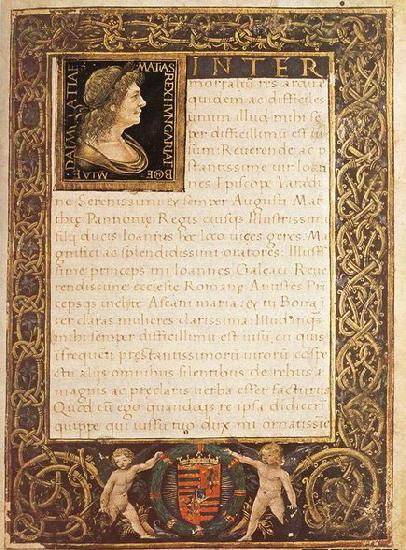 MATIAS REX HVNGARIAE BOE
MIAE DALMATIAE
INTER
mortalis res ardua
quidem ac difficiles
unum illud mihi se
per difficillimu est ui
sum: Reverende ac p
stantissime vir Ioan
nes Episcope Varadi
ne Serenissimi & semper Augusti Mat
thiæ Pannonie Regis eiusq Illustrissimi
filij ducis Ioannis hec loco vices geres: Ma
gnifici ac splendidissimi oratores: Illust
sime princeps mi Ioannes Galeaz Reve
rendissime ecclesie Romane Antistes Pri
cepsq inclyte Ascani maria: & tu Bona i
ter claras mulieres clarissima: Illud inq
mihi semper difficillimu est visu, cu quis
i frequeti prestantissimoru viroru cospe
ctu alijs omnibus silentibus de rebus
magnis ac preclaris verba esset facturus
Quod cu ego quandoqs re ipsa didicerī
quippe qui iussu tuo dux mi ornatissie